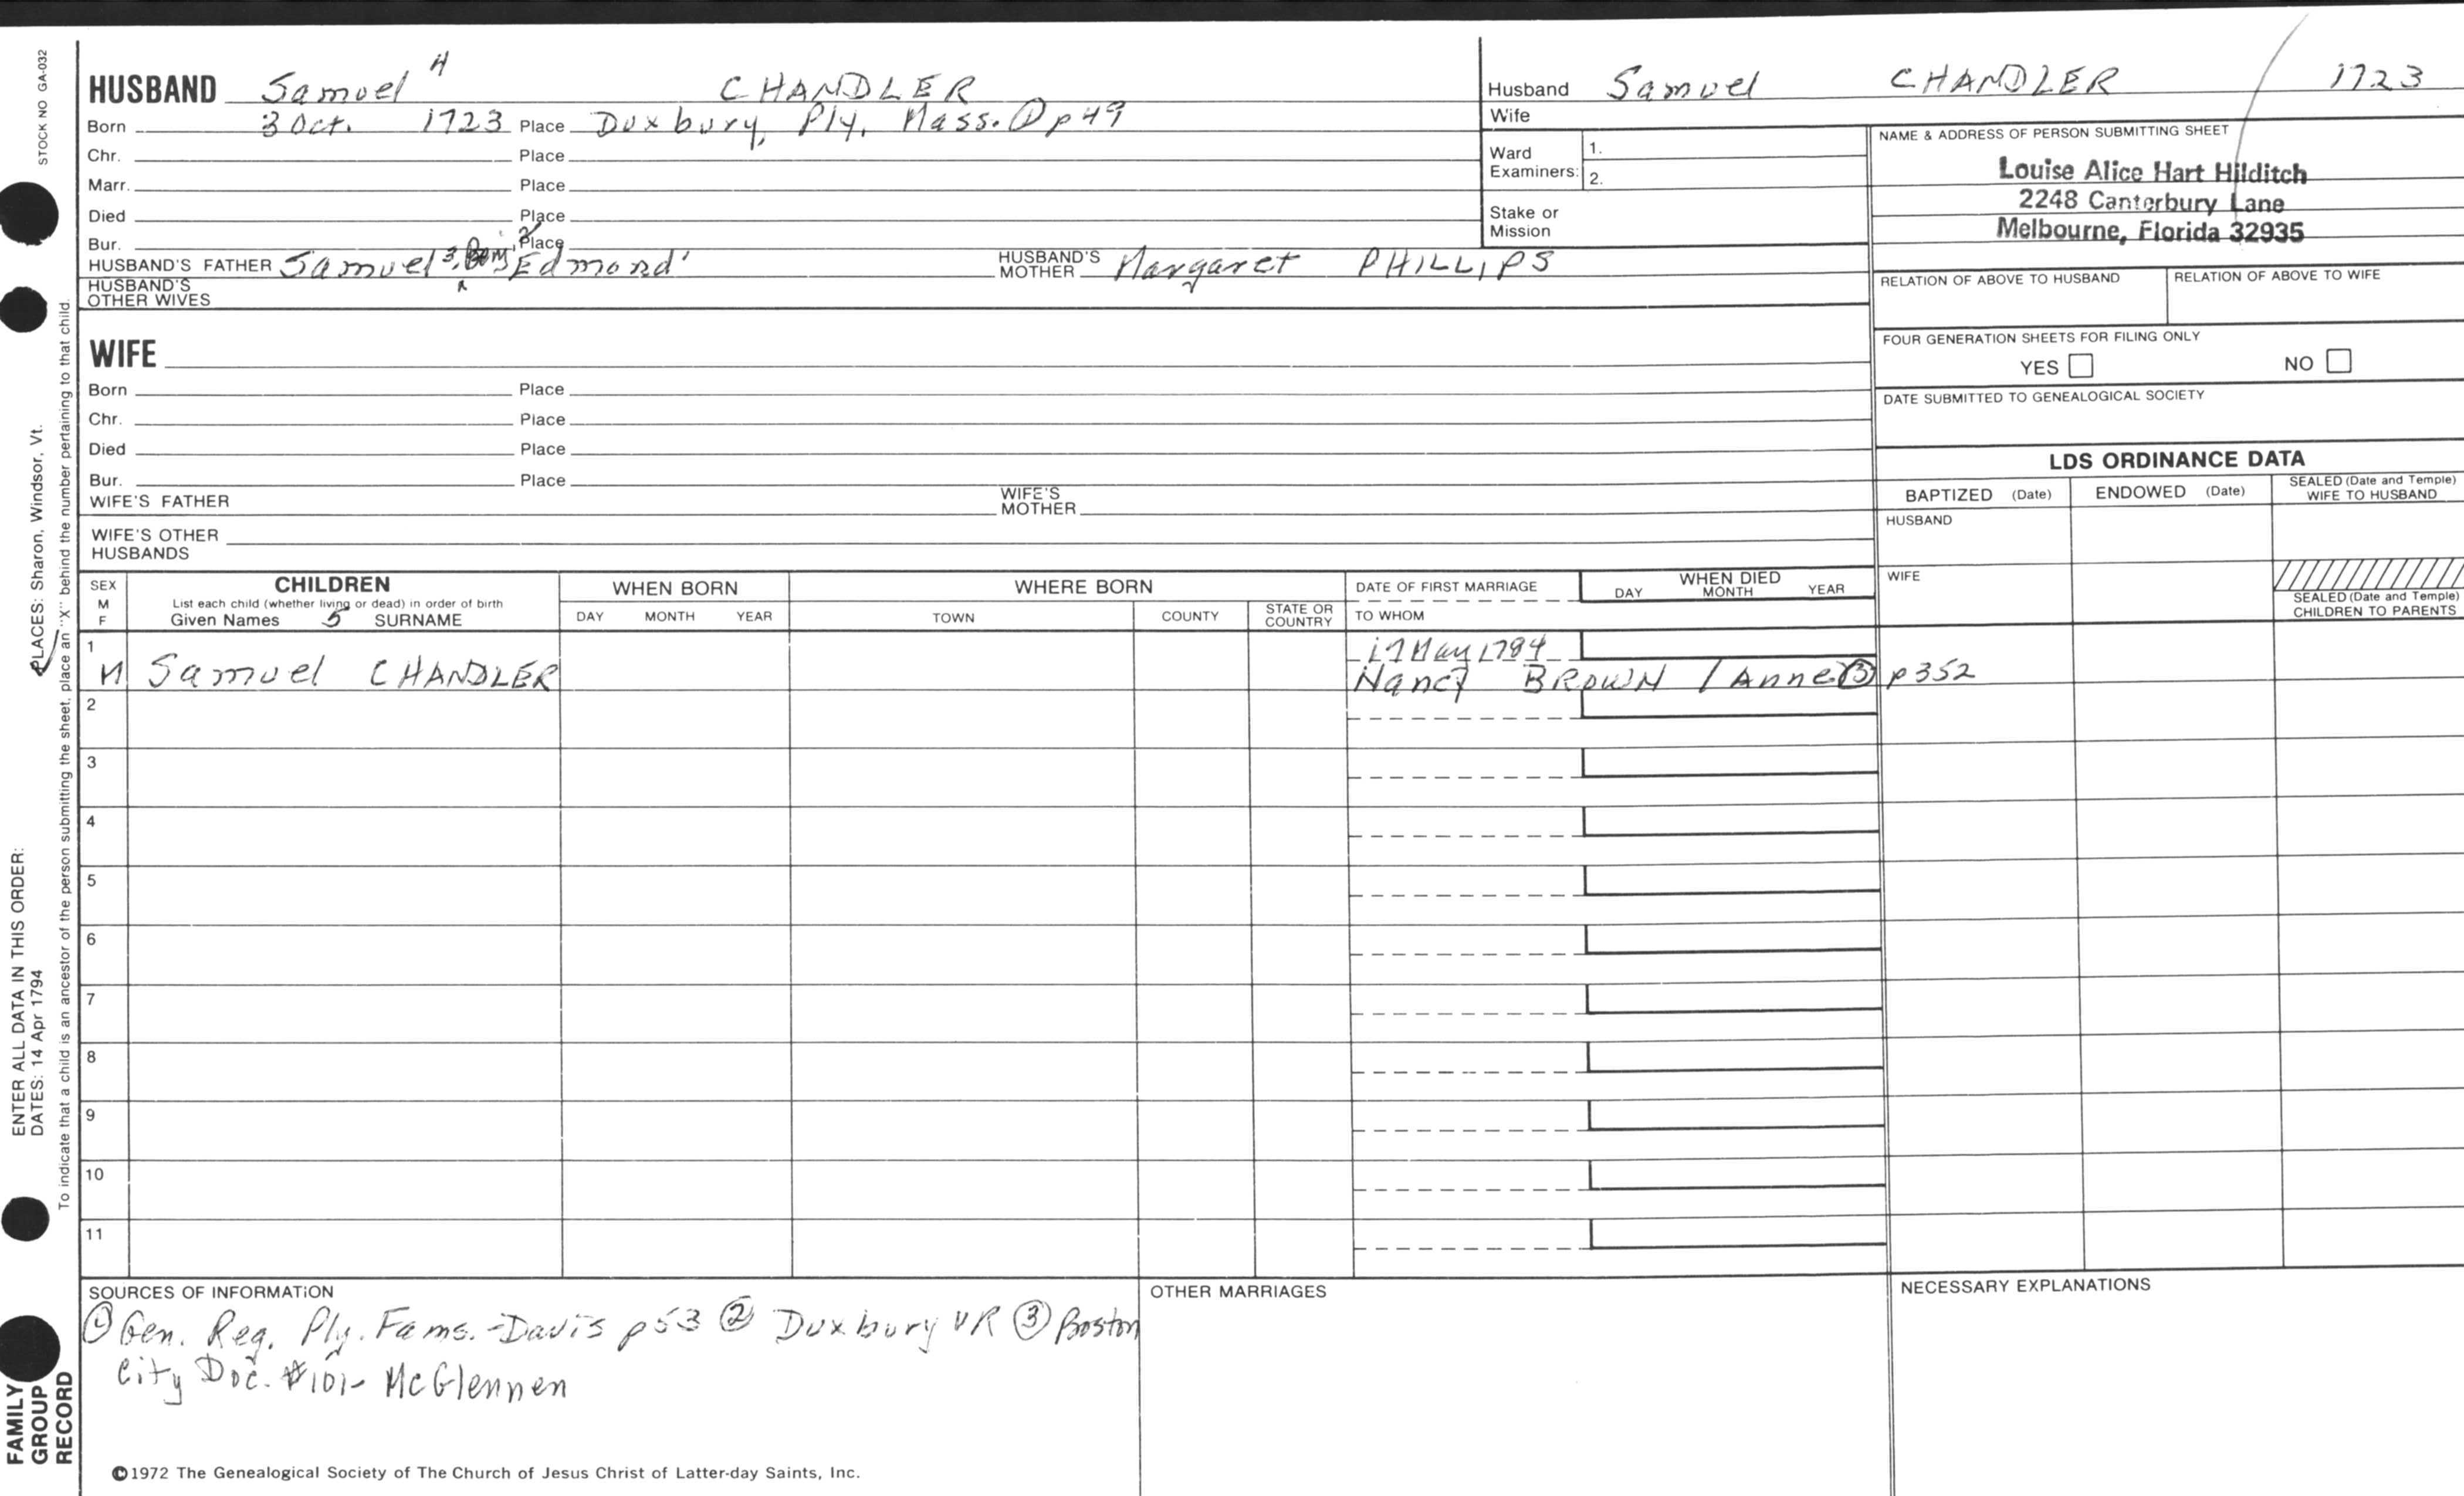 STOCK NO GA-032
HUSBAND Samuel 4 CHANDLER
Born 3 Oct. 1723 Place Duxbury, Ply, Mass. ① p 49
Chr. Place
Marr. Place
Died Place
Bur. Place
HUSBAND'S FATHER Samuel 3, Benj 2, Edmond 1 HUSBAND'S MOTHER Margaret PHILLIPS
HUSBAND'S OTHER WIVES
Husband Samuel CHANDLER 1723
Wife
Ward Examiners: 1.
2.
Stake or Mission
NAME & ADDRESS OF PERSON SUBMITTING SHEET
Louise Alice Hart Hilditch
2248 Canterbury Lane
Melbourne, Florida 32935
RELATION OF ABOVE TO HUSBAND RELATION OF ABOVE TO WIFE
FOUR GENERATION SHEETS FOR FILING ONLY
YES NO
DATE SUBMITTED TO GENEALOGICAL SOCIETY
WIFE
Born Place
Chr. Place
Died Place
Bur. Place
WIFE'S FATHER WIFE'S MOTHER
WIFE'S OTHER HUSBANDS
LDS ORDINANCE DATA
BAPTIZED (Date) ENDOWED (Date) SEALED (Date and Temple) WIFE TO HUSBAND
HUSBAND
WIFE
SEALED (Date and Temple) CHILDREN TO PARENTS
SEX M F
CHILDREN
List each child (whether living or dead) in order of birth
Given Names 5 SURNAME
WHEN BORN
DAY MONTH YEAR
WHERE BORN
TOWN COUNTY STATE OR COUNTRY
DATE OF FIRST MARRIAGE
TO WHOM
WHEN DIED
DAY MONTH YEAR
1 17 May 1784
M Samuel CHANDLER Nancy BROWN / Anne ③ p352
2
3
4
5
6
7
8
9
10
11
SOURCES OF INFORMATION
① Gen. Reg. Ply. Fams. - Davis p53 ② Duxbury VR ③ Boston
City Doc. #101- McGlennen
OTHER MARRIAGES
NECESSARY EXPLANATIONS
©1972 The Genealogical Society of The Church of Jesus Christ of Latter-day Saints, Inc.
FAMILY GROUP RECORD
ENTER ALL DATA IN THIS ORDER:
DATES: 14 Apr 1794 PLACES: Sharon, Windsor, Vt.
To indicate that a child is an ancestor of the person submitting the sheet, place an "X" behind the number pertaining to that child.